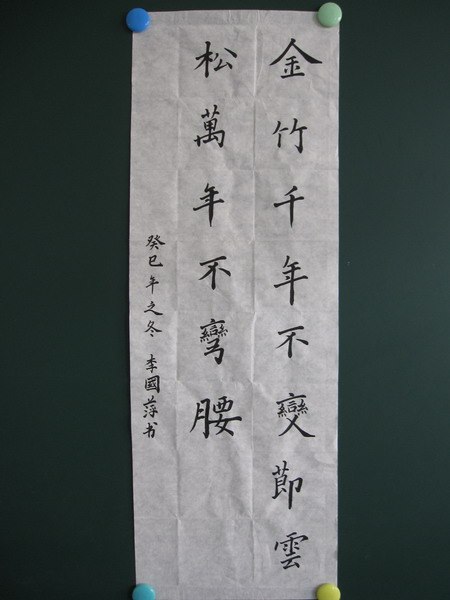 金竹千年不變節雲
松萬年不彎腰
癸巳年之冬 李國萍书